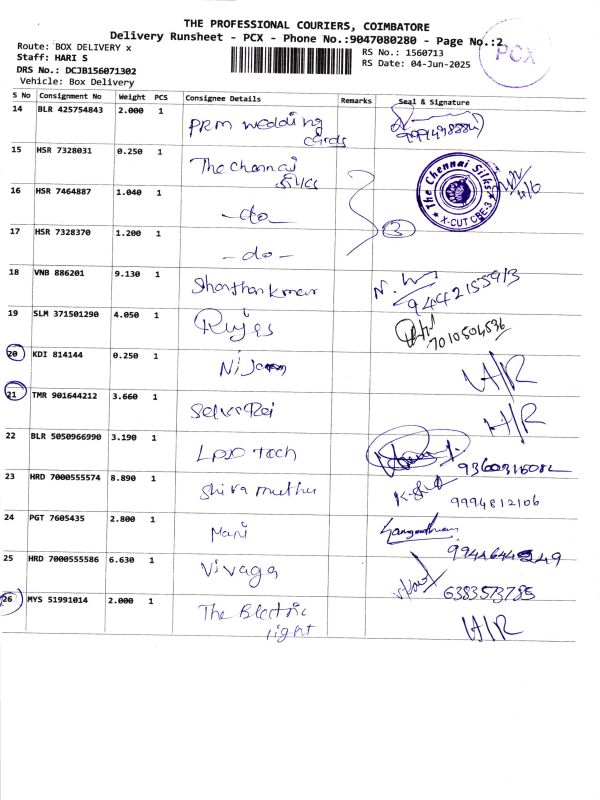 THE PROFESSIONAL COURIERS, COIMBATORE
Delivery Runsheet - PCX - Phone No.:9047080280 - Page No.:2
Route: BOX DELIVERY x
Staff: HARI S
DRS No.: DCJB156071302
Vehicle: Box Delivery
RS No.: 1560713
RS Date: 04-Jun-2025
PCX
S No Consignment No Weight PCS Consignee Details Remarks Seal & Signature
14 BLR 425754843 2.000 1 PRM wedding
cards
15 HSR 7328031 0.250 1 The chennai
silks
The Chennai Silks
X-CUT CBE-3
16 HSR 7464887 1.040 1 - do -
3
17 HSR 7328370 1.200 1 - do -
18 VNB 886201 9.130 1 9442155913
19 SLM 371501290 4.050 1 7010504536
20 KDI 814144 0.250 1 Nijam H/R
21 TMR 901644212 3.660 1 H/R
22 BLR 5050966990 3.190 1 Tech
23 HRD 7000555574 8.890 1 Shiva muthu 9994812106
24 PGT 7605435 2.800 1 Mani
25 HRD 7000555586 6.630 1 Vivaga
26 MYS 51991014 2.000 1 The Electric
light H/R